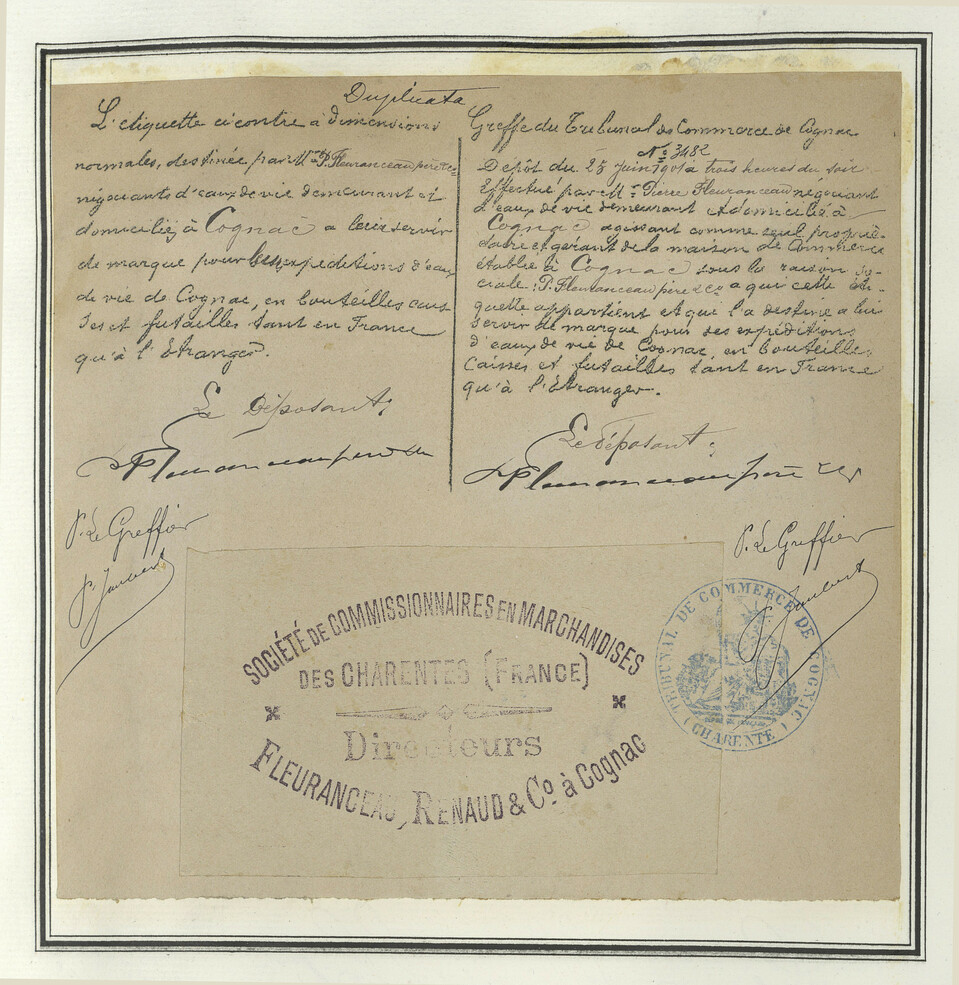 Duplicata
L'étiquette ci contre à dimensions
normales, destinée par M.rs P. Fleuranceau père & Co
négociants d'eaux de vie demeurant et
domiciliés à Cognac a leur servir
de marque pour leurs expéditions d'eaux
de vie de Cognac, en bouteilles cais
ses et futailles tant en France
qu'à l'Etranger.
Le Déposant,
Fleuranceau père & Co
P. Le Greffier
P. Jaubert
Greffe du Tribunal de Commerce de Cognac
No 3482
Dépôt du 25 Juin 1901 à trois heures du soir
Effectué par M.r Pierre Fleuranceau négociant
d'eaux de vie demeurant et domicilié à
Cognac agissant comme seul proprié-
taire et gérant de la maison de Commerce
établie à Cognac sous la raison so-
ciale: P. Fleuranceau père & Co a qui cette éti-
quette appartient et qui l'a destine a lui
servir de marque pour ses expéditions
d'eaux de vie de Cognac, en bouteilles
Caisses et futailles tant en France
qu'à l'Etranger.
Le déposant:
Fleuranceau père & Co
P. Le Greffier
Jaubert
SOCIÉTÉ DE COMMISSIONNAIRES EN MARCHANDISES
DES CHARENTES (FRANCE)
Directeurs
FLEURANCEAU, RENAUD & Co. à Cognac
TRIBUNAL DE COMMERCE DE COGNAC
(CHARENTE)